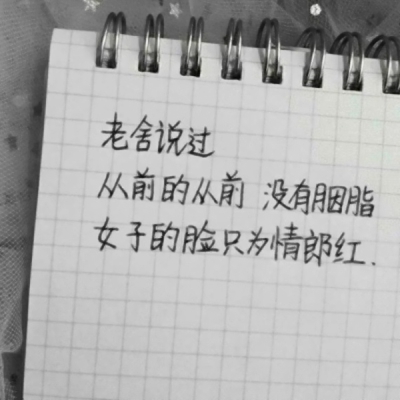 老舍说过
从前的从前 没有胭脂
女子的脸只为情郎红.